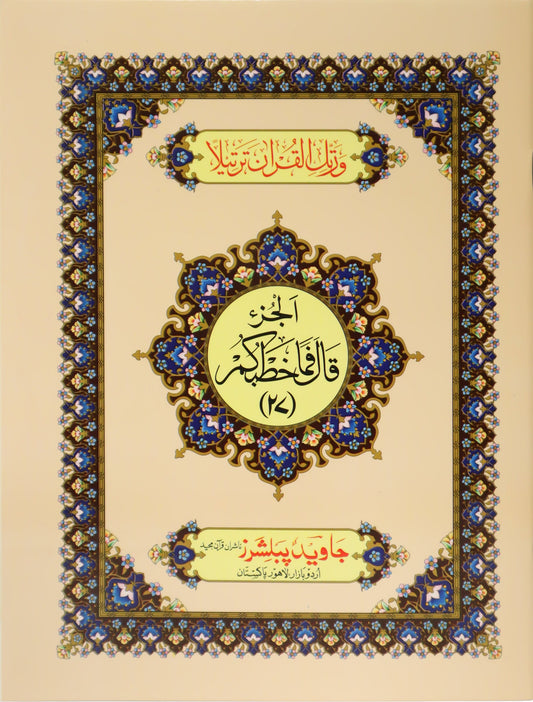 وَرَتِّلِ الْقُرْاٰنَ تَرْتِيْلًا
اَلْجُزْءُ
قَالَ فَمَا خَطْبُكُمْ
(۲۷)
جاوید پبلشرز ناشران قرآن مجید
اردو بازار لاهور پاکستان